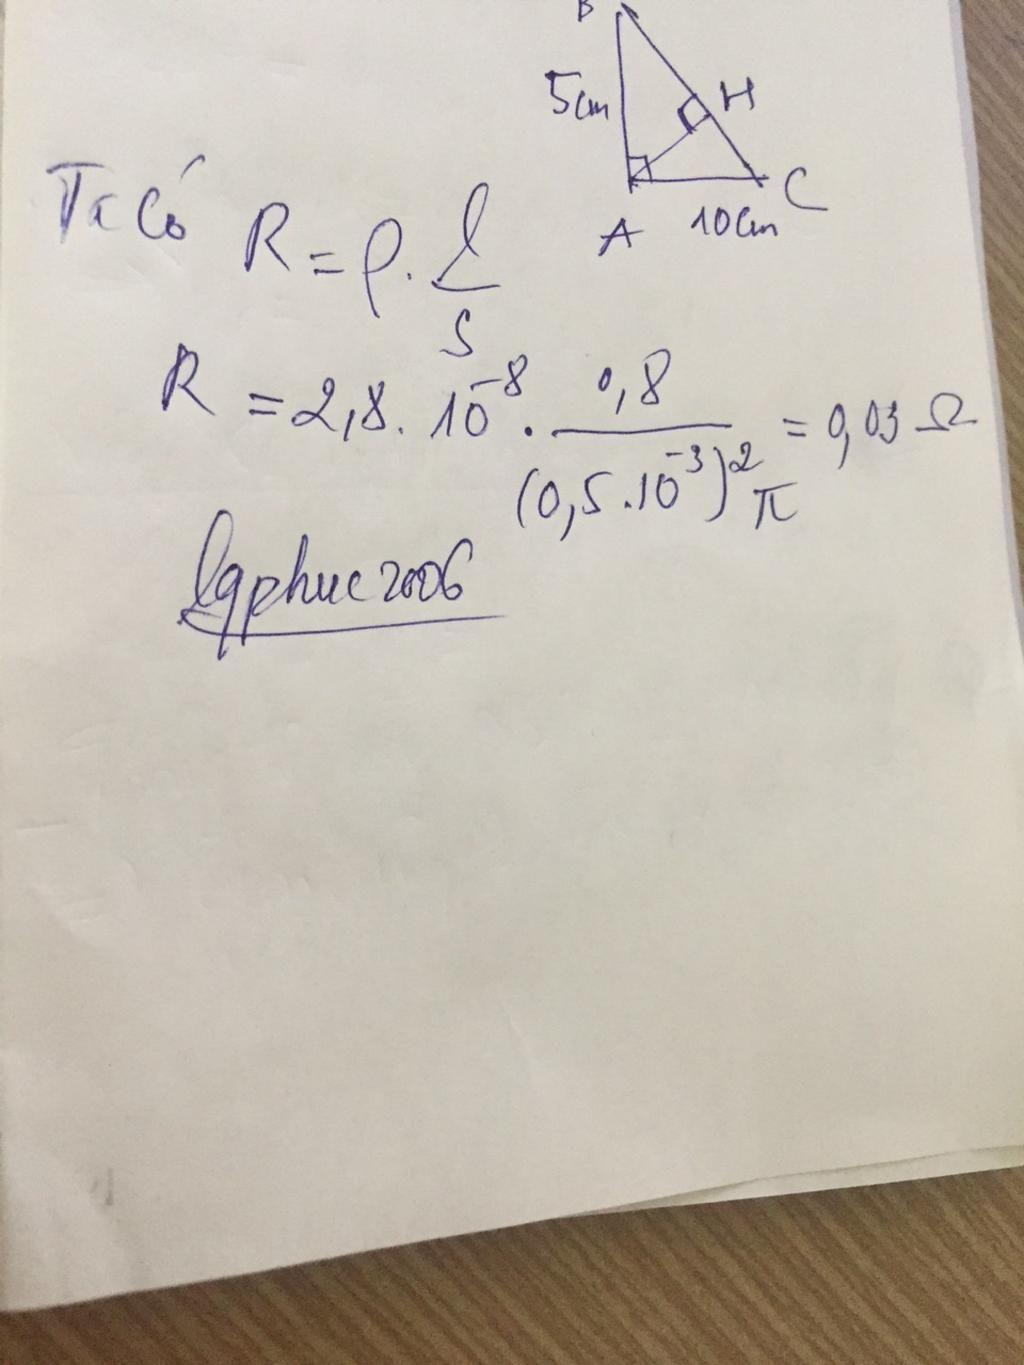 B
5cm
H
A
10cm
C
Ta có
R = ρ. l/S
R = 2,8. 10⁻⁸. 0,8/(0,5.10⁻³)²π = 0,03 Ω
lqphuc2006